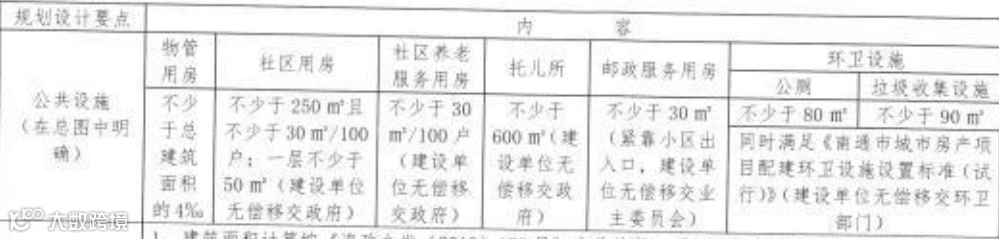 规划设计要点
内 容
公共设施
（在总图中明
确）
物管
用房
社区用房
社区养老
服务用房
托儿所
邮政服务用房
环卫设施
公厕
垃圾收集设施
不少
于总
建筑
面积
的4‰
不少于 250 ㎡且
不少于 30 ㎡/100
户；一层不少于
50 ㎡（建设单位
无偿移交政府）
不少于 30
㎡/100 户
（建设单
位无偿移
交政府）
不少于
600 ㎡（建
设单位无
偿移交政
府）
不少于 30 ㎡
（紧靠小区出
入口，建设单
位无偿移交业
主委员会）
不少于 80 ㎡
不少于 90 ㎡
同时满足《南通市城市房产项
目配建环卫设施设置标准（试
行）》（建设单位无偿移交环卫
部门）
大数跨境